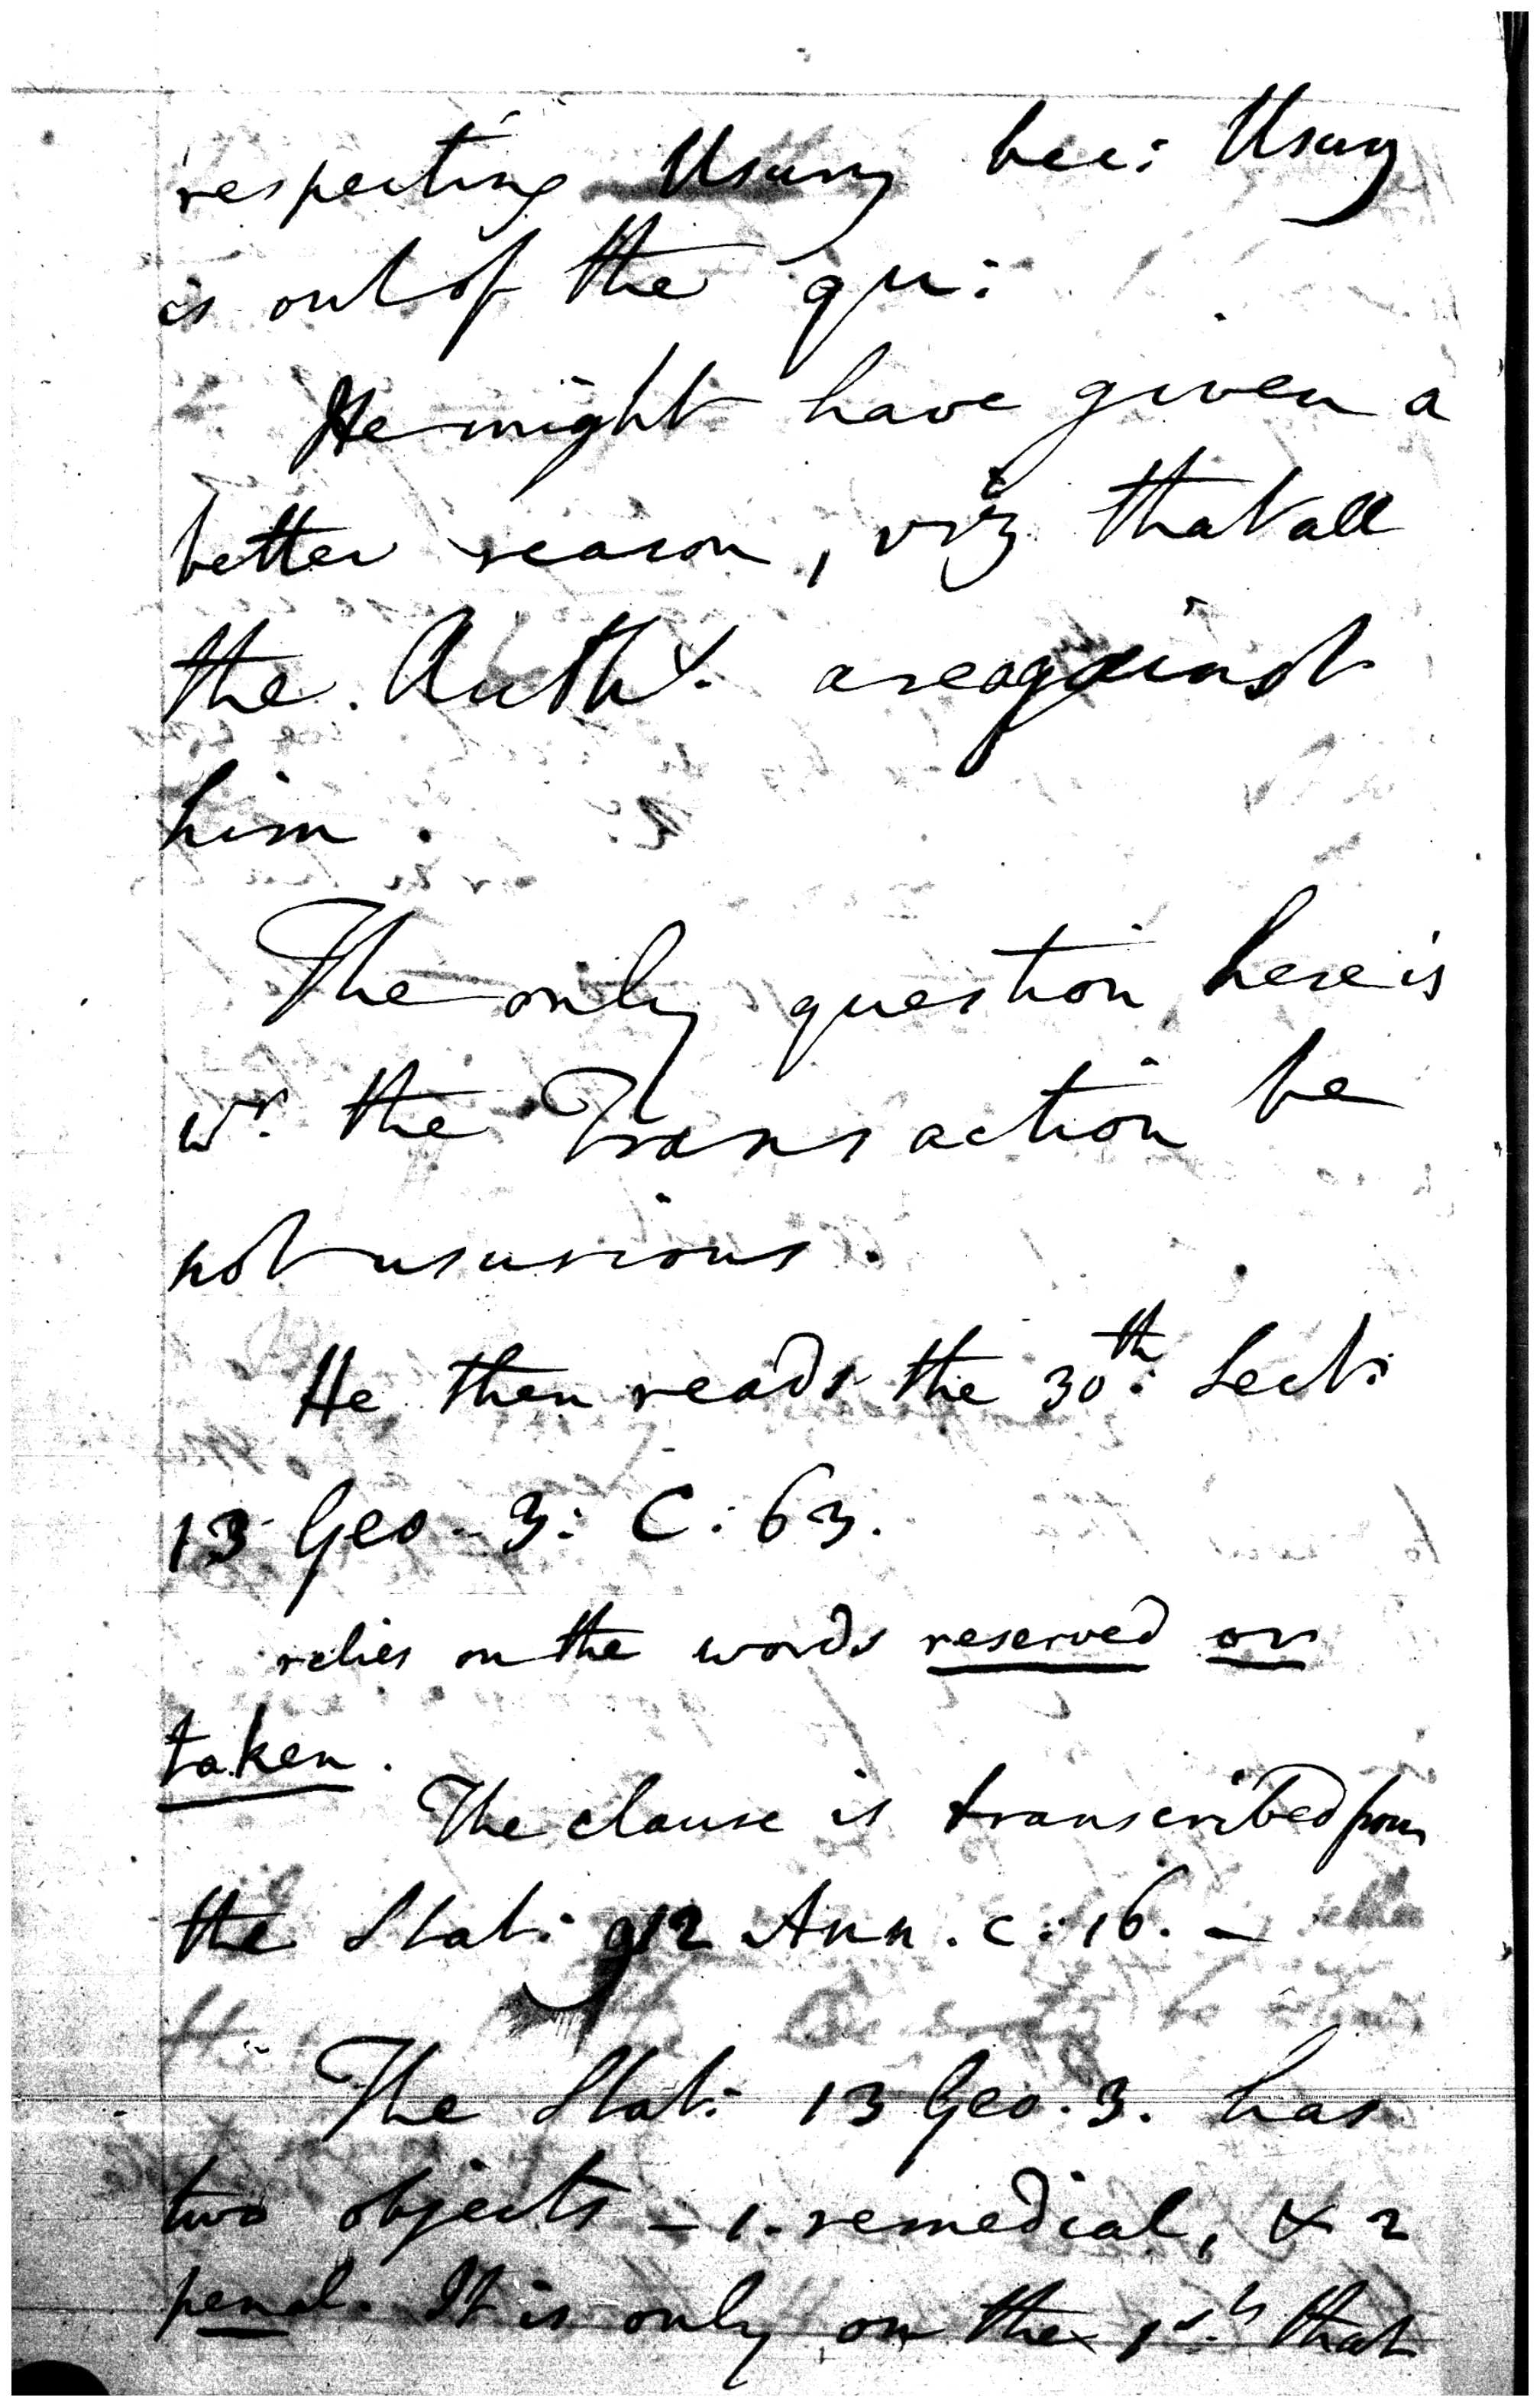 respecting Usury bec: Usury
is out of the qu:
He might have given a
better reason, viz that all
the Authy. are against
him.
The only question here is
wr. the Transaction be
not usurious.
He then reads the 30th: Sect:
13 Geo. 3: C: 63.
relies on the words reserved or
taken.
The clause is transcribed from
the Stat: 12 Ann. c: 16. –
The Stat: 13 Geo. 3. has
two objects – 1. remedial, & 2
penal. It is only on the 1st. that